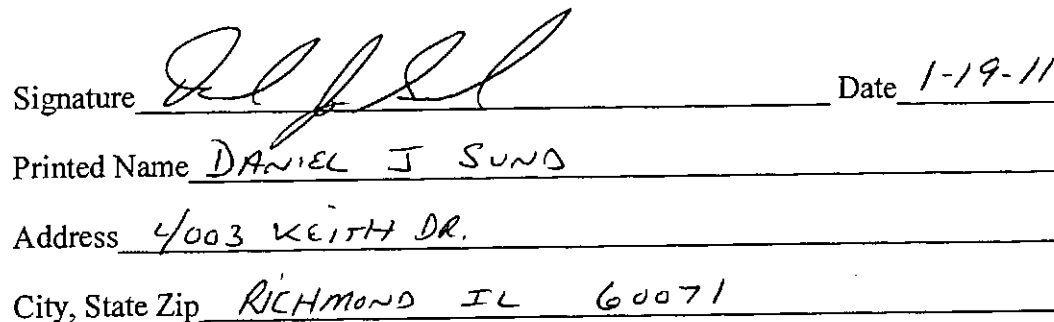 Signature Date 1-19-11
Printed Name DANIEL J SUND
Address 4003 KEITH DR.
City, State Zip RICHMOND IL 60071